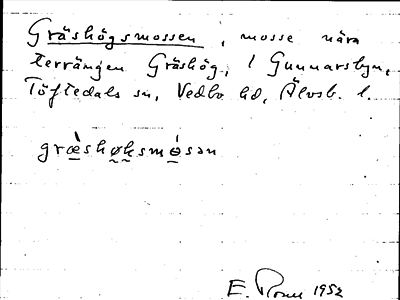 Gräshögsmossen, mosse nära
terrängen Gräshög, i Gunnarsbyn,
Töftedals sn, Vedbo hd, Älvsb. l.
græ̀shøksmósən
E. 1952